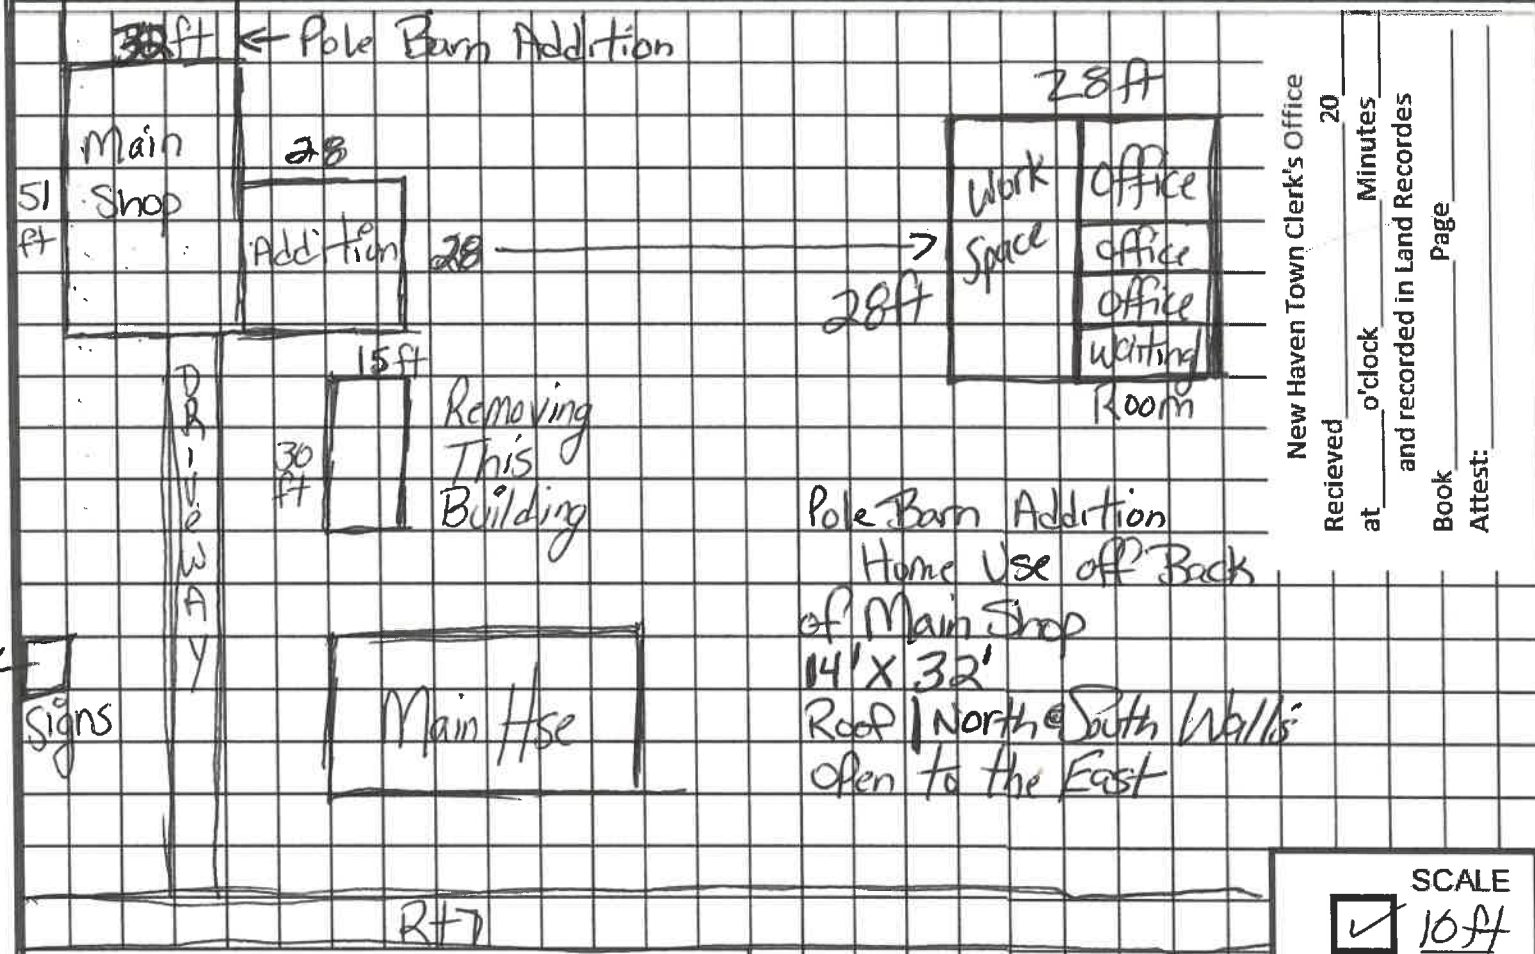 32ft ← Pole Barn Addition
Main
Shop
51
ft
28
Addition
28
28ft
28ft
Work
Space
Office
Office
Office
Waiting
Room
15ft
30
ft
Removing
This
Building
DRIVeWAY
Signs
Main Hse
Pole Barn Addition
Home Use off Back
of Main Shop
14' X 32'
Roof | North & South Walls
Open to the East
Rt 7
New Haven Town Clerk's Office
Recieved 20
at o'clock Minutes
and recorded in Land Recordes
Book Page
Attest:
SCALE
✓ 10ft